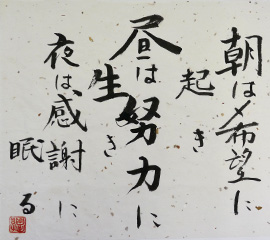 朝は希望に
起き
昼は努力に
生き
夜は感謝に
眠る